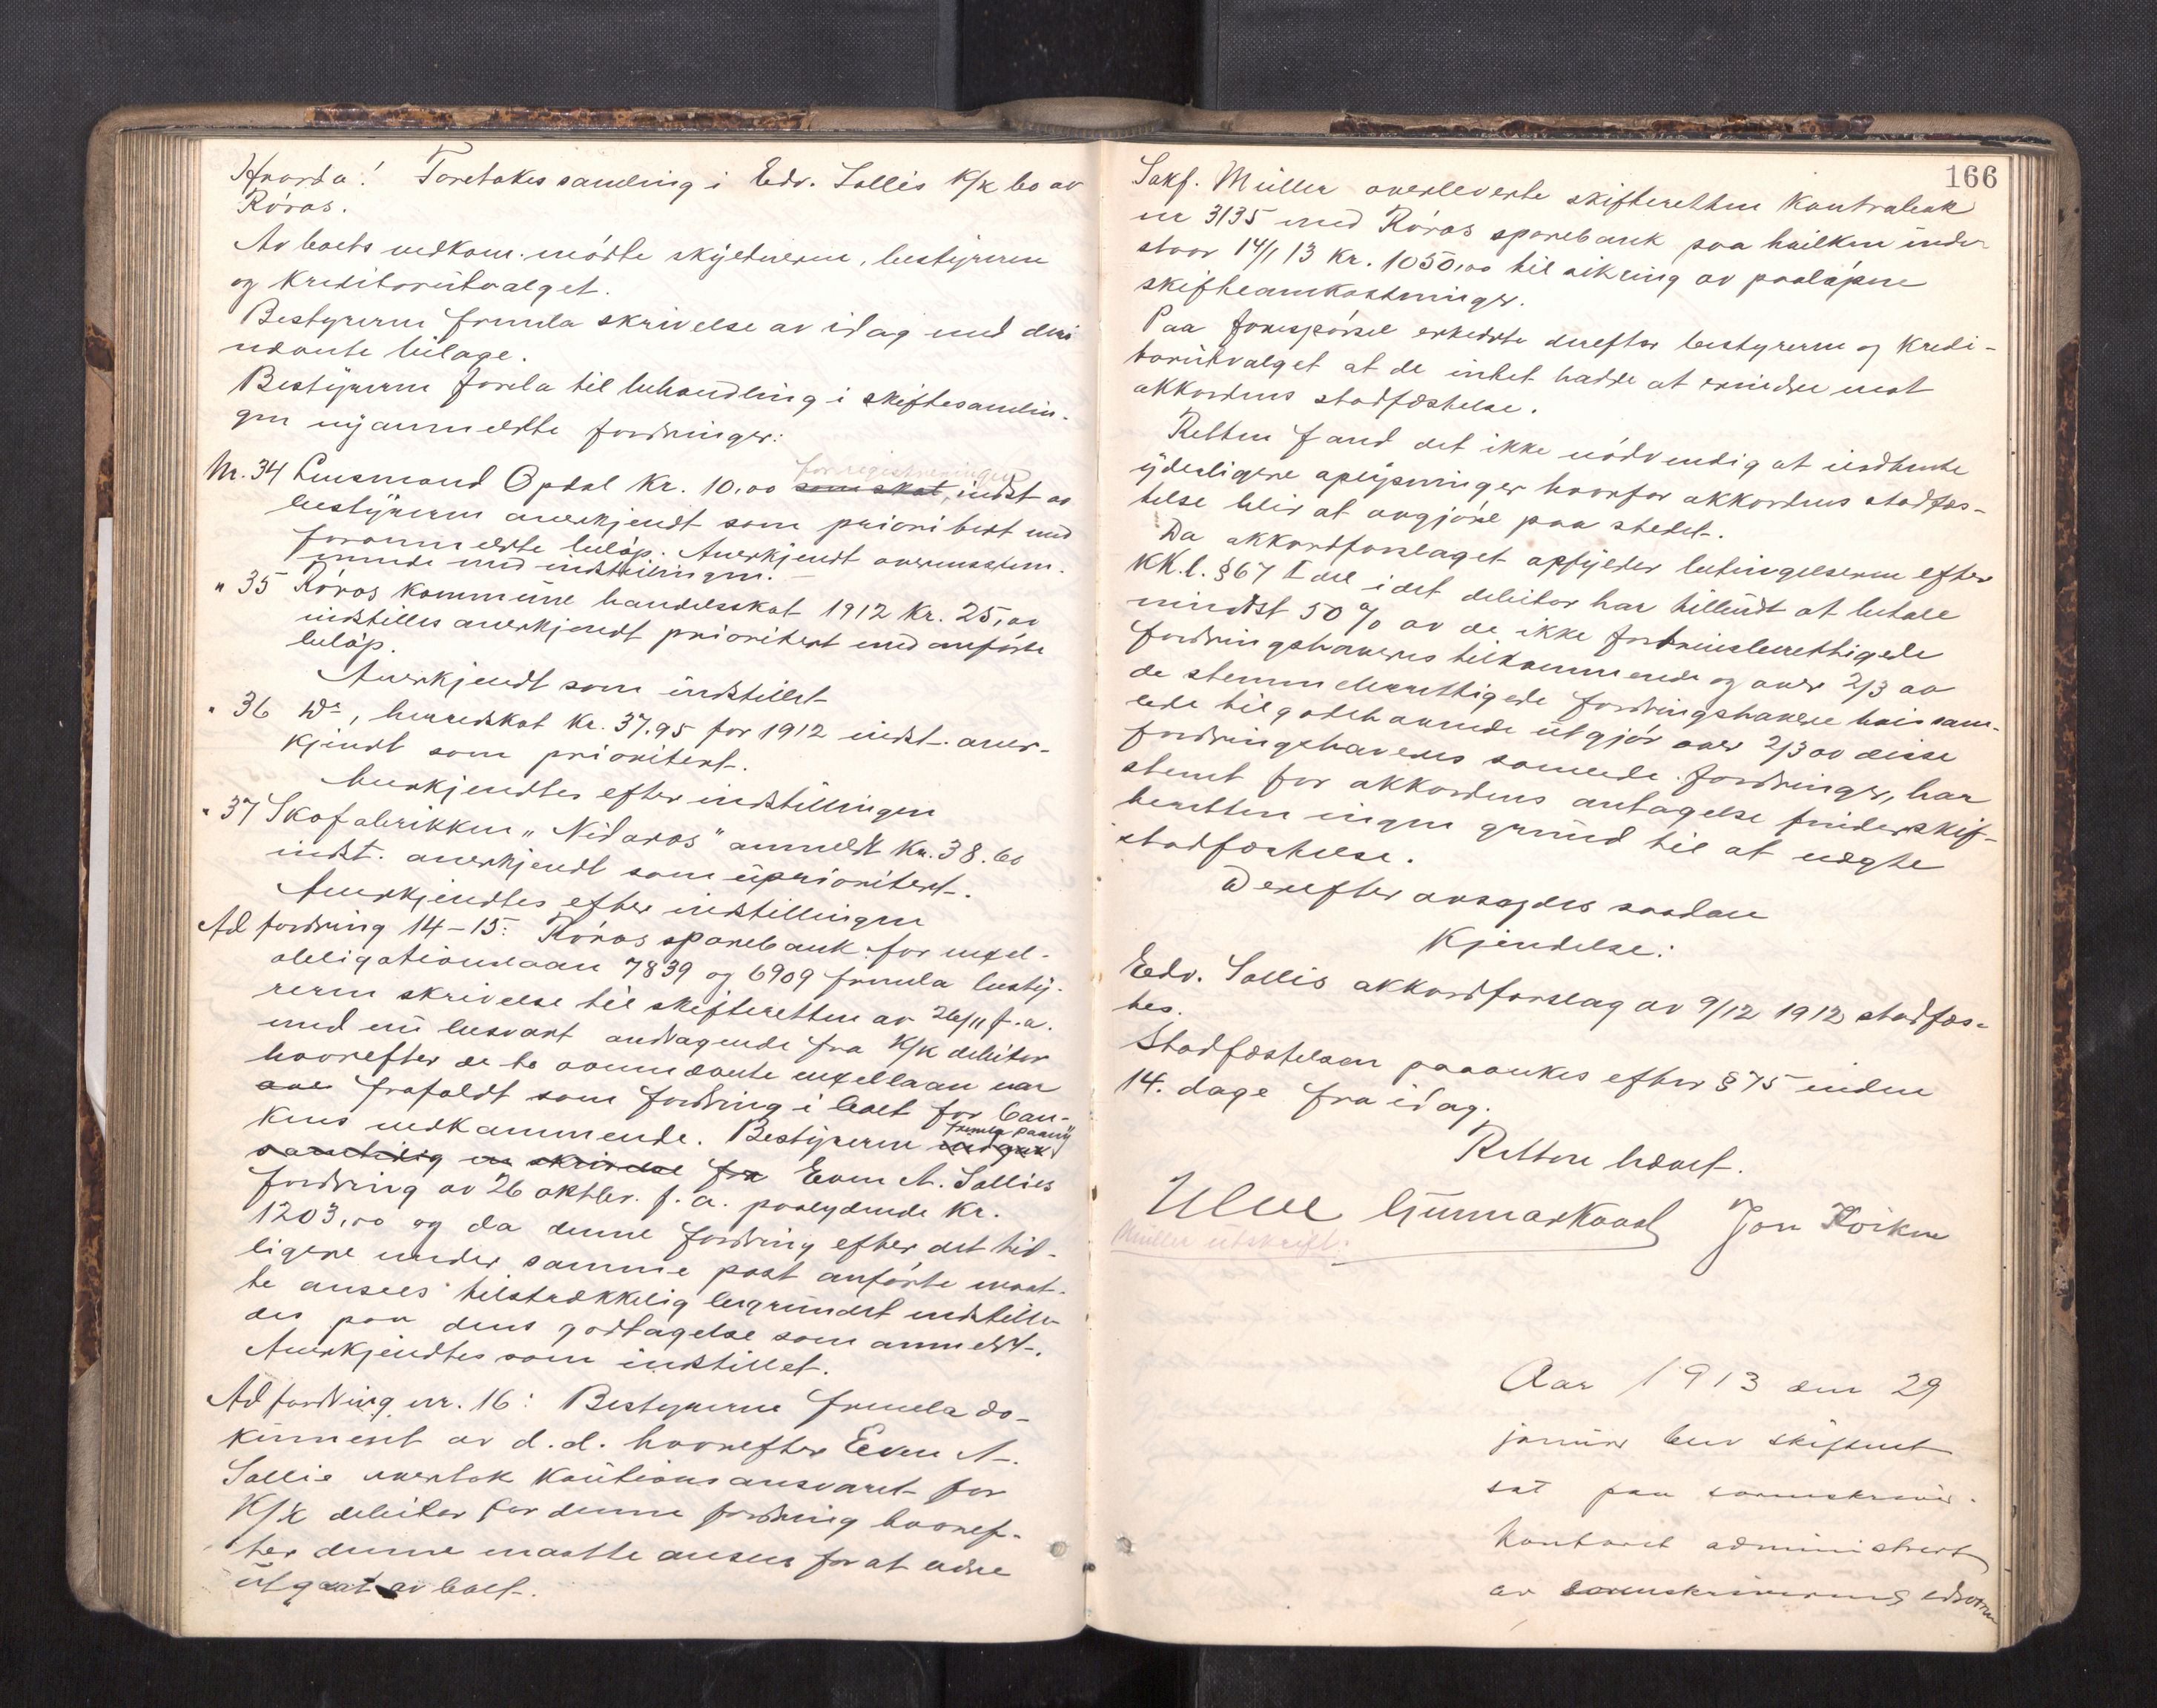 Hvorda! Foretokes samling i Edv. Sollis K/K bo av
Röros.
Av boets vedkom. mödte skyldneren, bestyreren
og Kreditorutvalget.
Bestyreren fremla skrivelse av idag med deri
nævnte bilage.
Bestyreren forela til behandling i skiftesamlin-
gen nyanmeldte fordringer:
for registreringen
Nr. 34 Lensmand Opdal Kr. 10,00 som skat, indst av
bestyreren anerkjendt som prioritert med
foranmeldte belöp. Anerkjendt overensstem-
mende med indstillingen. -
" 35 Röros kommune handelsskat 1912 Kr. 25,00
indstilles anerkjendt prioritert med anförte
belöp.
Anerkjendt som indstillet
" 36 Do, herredskat Kr. 37.95 for 1912 indst. aner-
kjendt som prioritert.
Anerkjendtes efter indstillingen
" 37 Skofabrikken "Nidaros" anmeldt Kr. 38.60
indst. anerkjendt som uprioritert.
Anerkjendtes efter indstillingen
Ad fordring 14-15: Röros sparebank for vexel-
obligationslaan 7839 og 6909 fremla besty-
reren skrivelse til skifteretten av 26/11 f.a.
med en besvart andragende fra K/K debitor
hvorefter de to ovennævnte vexellaan var
frafaldt som fordring i boet for ban-
kens vedkommende. Bestyreren
fremla paany
samtidig en skrivelse fra Even A. Sollies
fordring av 26 oktbr. f.a. paalydende Kr.
1203,00 og da denne fordring efter det tid-
ligere under samme post anförte maat-
te ansees tilstrækkelig begrundet indstille-
des paa dens godtagelse som anmeldt.
Anerkjendtes som indstillet.
Ad fordring nr. 16: Bestyreren fremla do-
kument av d.d. hvorefter Even A.
Sollie overtok Kautionsansvaret for
K/K debitor for denne fordring hvoref-
ter denne maatte ansees for at være
utgaat av boet.
166
Sakf. Müller overleverte skifteretten Kontrabok
nr 3135 med Röros sparebank paa hvilken inde-
staar 14/1 13 Kr. 1050,00 til sikring av paalöpne
skifteomkostninger.
Paa forespörsel erklærte derefter bestyreren og Kredi-
torutvalget at de intet hadde at erindre mot
akkordens stadfæstelse.
Retten fand det ikke nödvendig at indhente
yderligere oplysninger hvorfor akkordens stadfæs-
telse blir at avgjöre paa stedet.
Da akkordforslaget opfylder betingelserne efter
KK.l. §67 I del idet debitor har tilbudt at betale
mindst 50% av de ikke fortrinsberettigede
fordringshaveres tilkommende og over 2/3 av
de stemmeberettigede fordringshavere hvis sam-
lede tilgodehavende utgjör over 2/3 av disse
fordringshaveres samlede fordringer, har
stemt for akkordens antagelse finder skif-
teretten ingen grund til at nægte
stadfæstelse.
Derefter avsagdes saadan
Kjendelse:
Edv. Sollis akkordforslag av 9/12 1912 stadfæs-
tes.
Stadfæstelsen paaankes efter §75 inden
14. dage fra idag.
Retten hævet.
Ulve Gunnar Kaasl Jon Kvikne
Müller utskrift.
Aar 1913 den 29
januar blev skifteret
sat paa sorenskriver-
Kontoret administrert
av sorenskriverens edsvorne